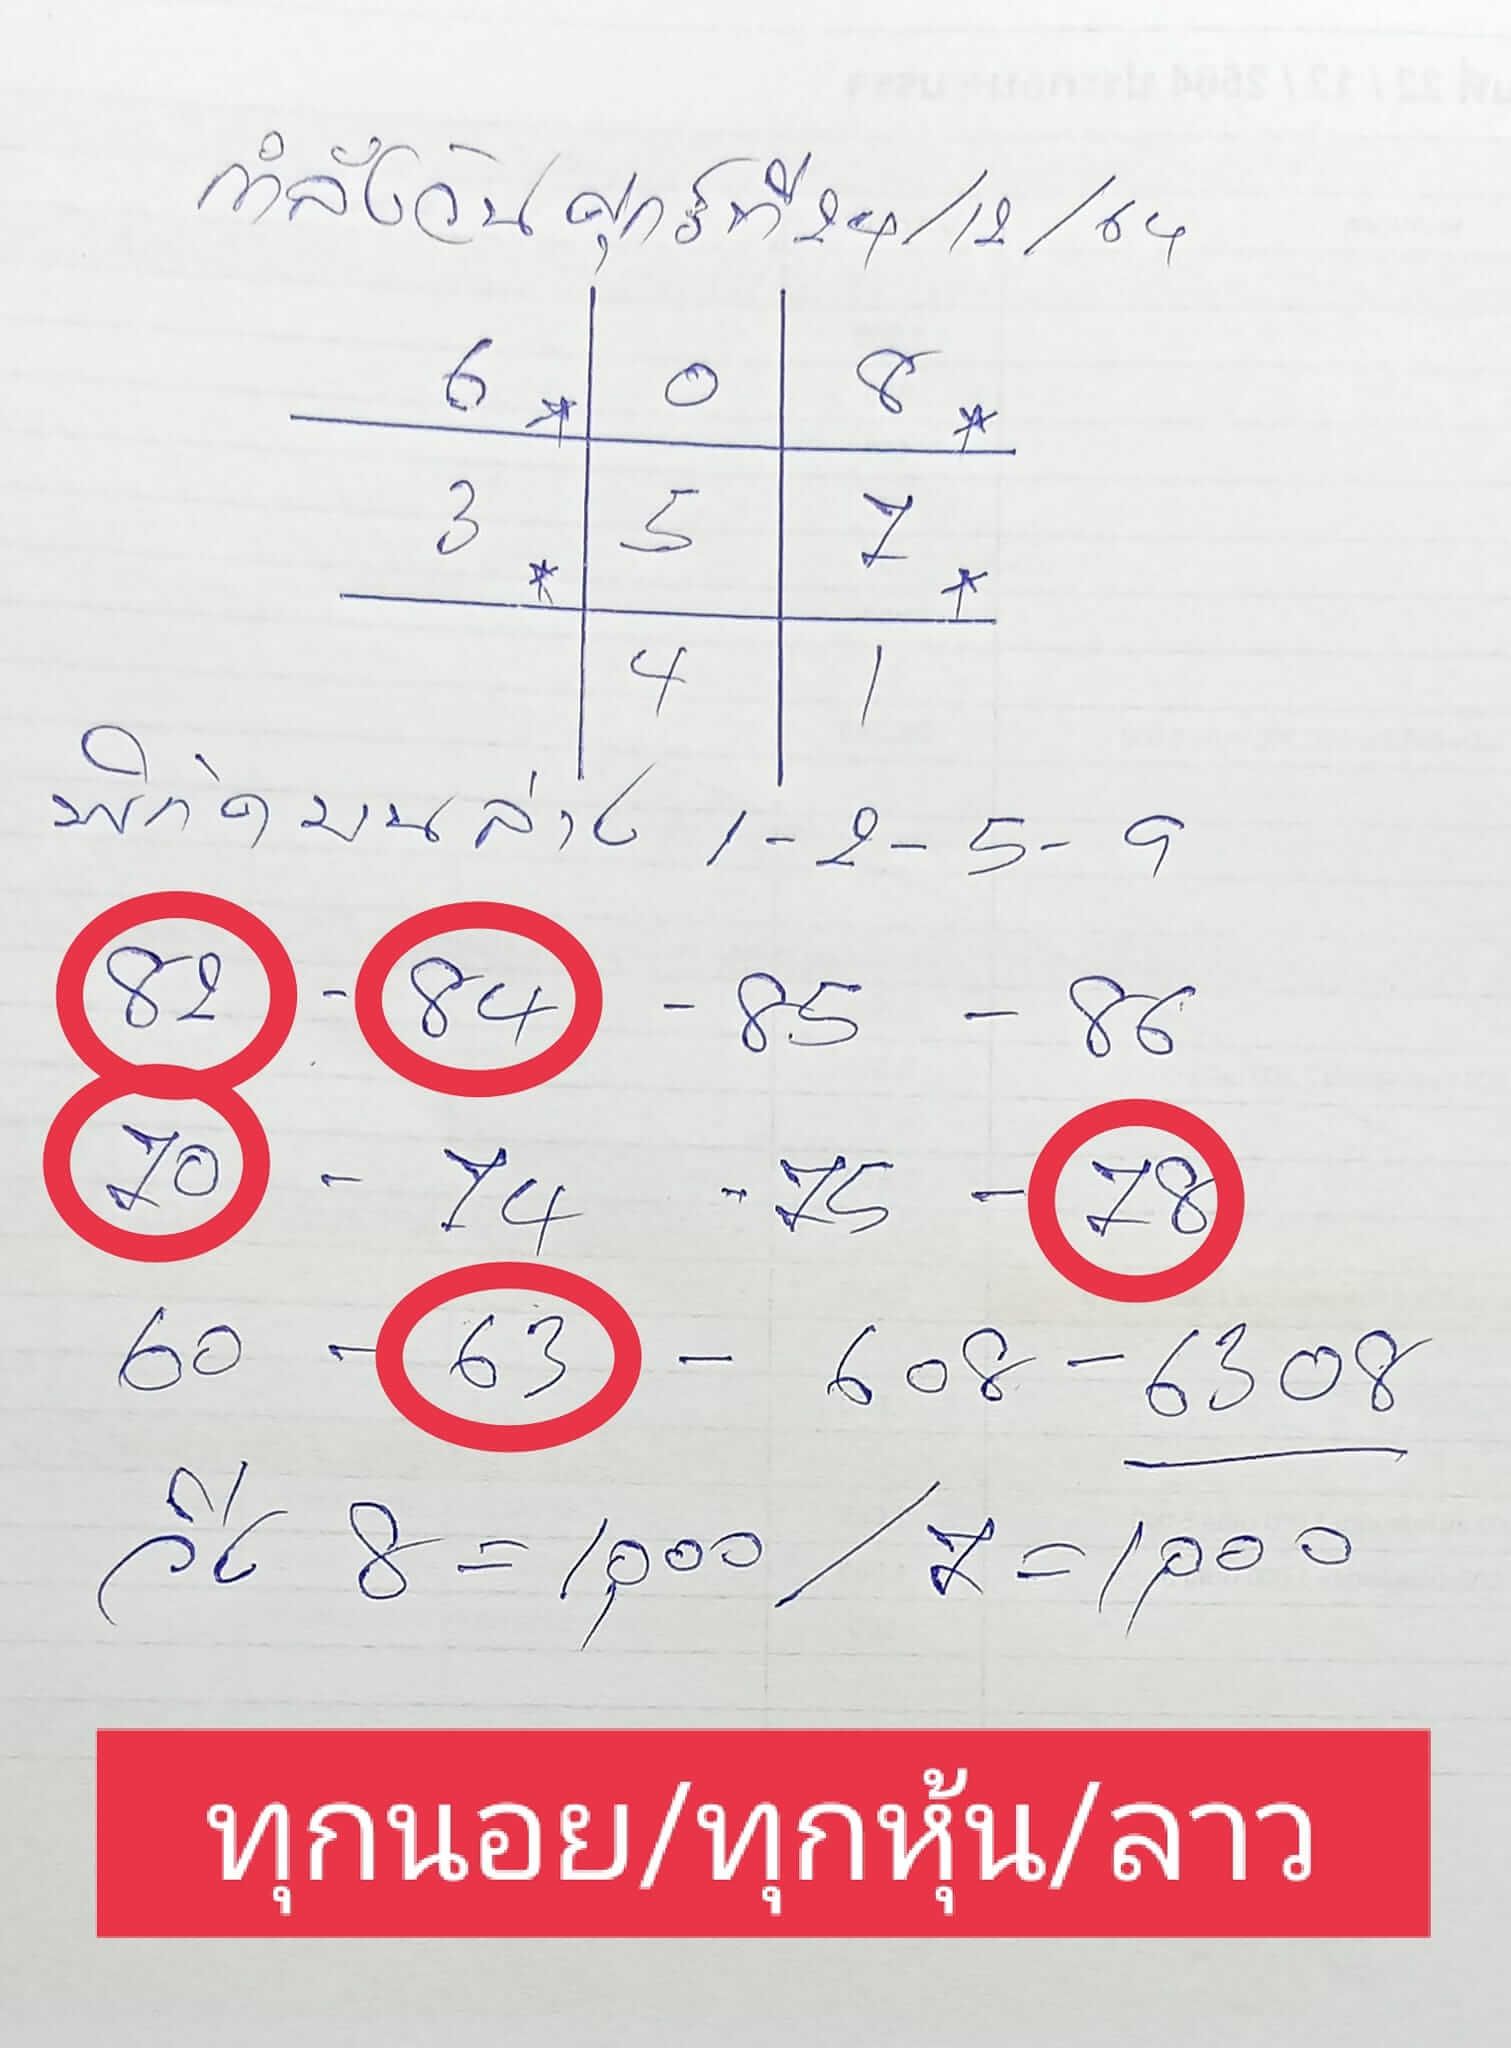 กำลังวันศุกร์ที่ 24/12/64
6 * 0 8 *
3 * 5 7 *
4 1
พิกัดบนล่าง 1-2-5-9
82 - 84 - 85 - 86
70 - 74 - 75 - 78
60 - 63 - 608 - 6308
วิ่ง 8 = 1,000 / 7 = 1,000
ทุกนอย/ทุกหุ้น/ลาว